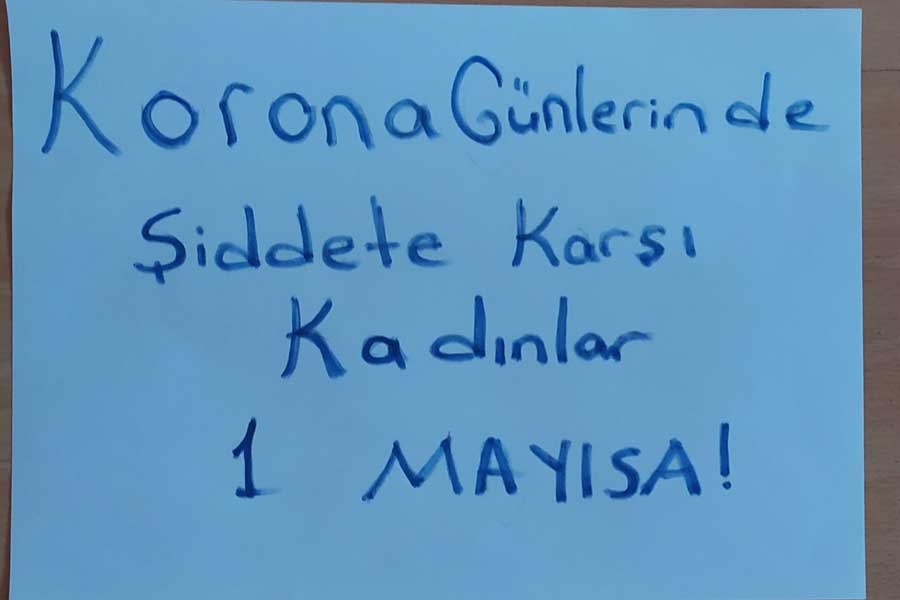 Korona Günlerinde
Şiddete Karşı
Kadınlar
1 MAYISA!